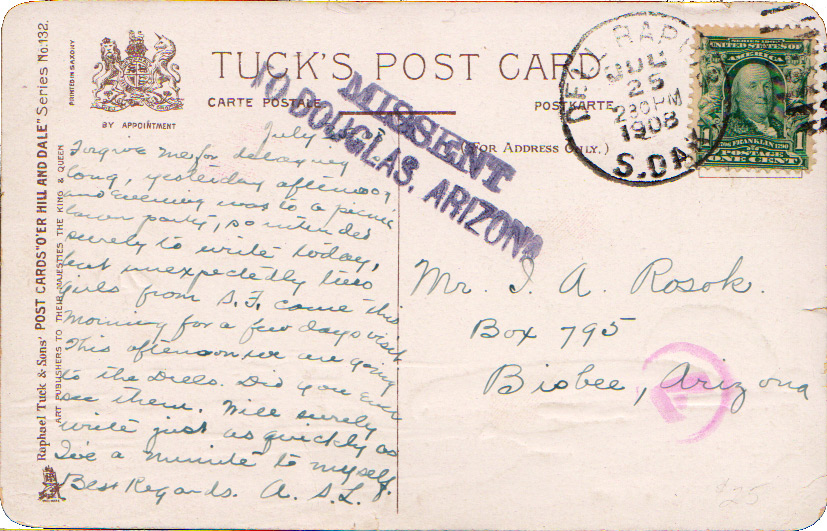 Raphael Tuck & Sons' POST CARDS "O'ER HILL AND DALE" Series No. 132.
ART PUBLISHERS TO THEIR MAJESTIES THE KING & QUEEN
PRINTED IN SAXONY
BY APPOINTMENT
TUCK'S POST CARD
CARTE POSTALE
POSTKARTE
(FOR ADDRESS ONLY.)
MISSENT
TO DOUGLAS, ARIZONA
DELL RAPI
JUL
25
230 PM
1908
S. DAK
SERIES 1902
UNITED STATES OF
AMERICA
FRANKLIN
1
POSTAGE
ONE CENT
July
Forgive me for delaying
long, yesterday afternoon
and evening was to a picnic
lawn party, so intended
surely to write today,
but unexpectedly two
girls from S.F. came this
morning for a few days visit.
This afternoon we are going
to the Dells. Did you ever
see them. Will surely
write just as quickly as
I've a minute to myself.
Best Regards. A. S. L.
Mr. I. A. Rosok.
Box 795
Bisbee, Arizona